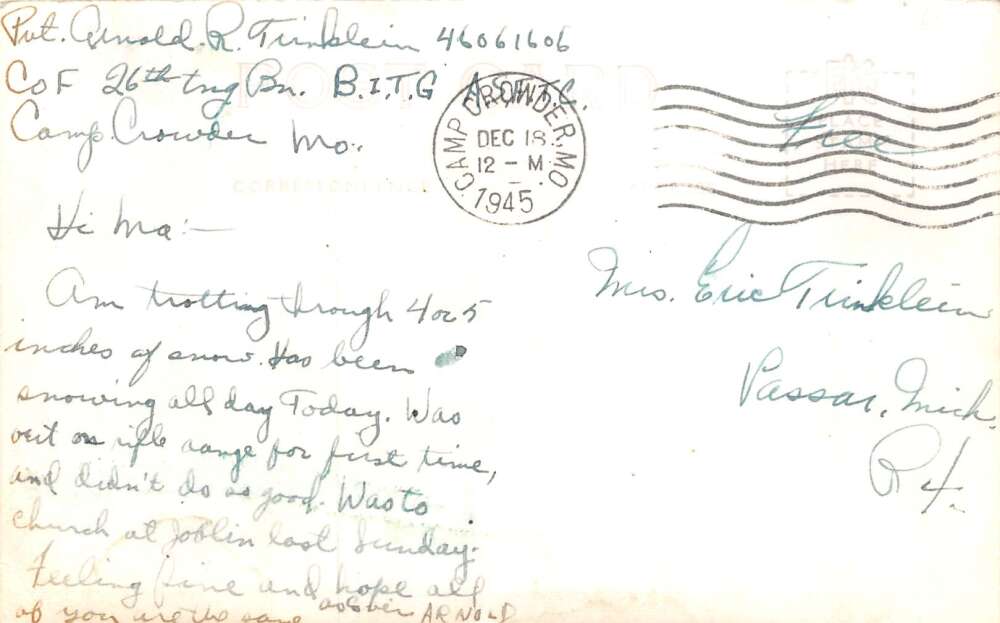 Pvt. Arnold. R. Trinklein 46061606
Co F 26th tng Bn. B.I.T.G A.S.F.T.C.
Camp. Crowder Mo.
POST CARD
CAMP CROWDER, MO.
DEC 18
12 - M
1945
Free
PLACE
HERE
CORRESPONDENCE
Hi Ma:—
Am trotting through 4 or 5
inches of snow. Has been
snowing all day Today. Was
out on rifle range for first time,
and didn't do so good. Was to
church at Joblin last Sunday.
Feeling fine and hope all
of you are the same as ever ARNOLD
Mrs. Eric Trinklein
Vassar, Mich.
R 4.